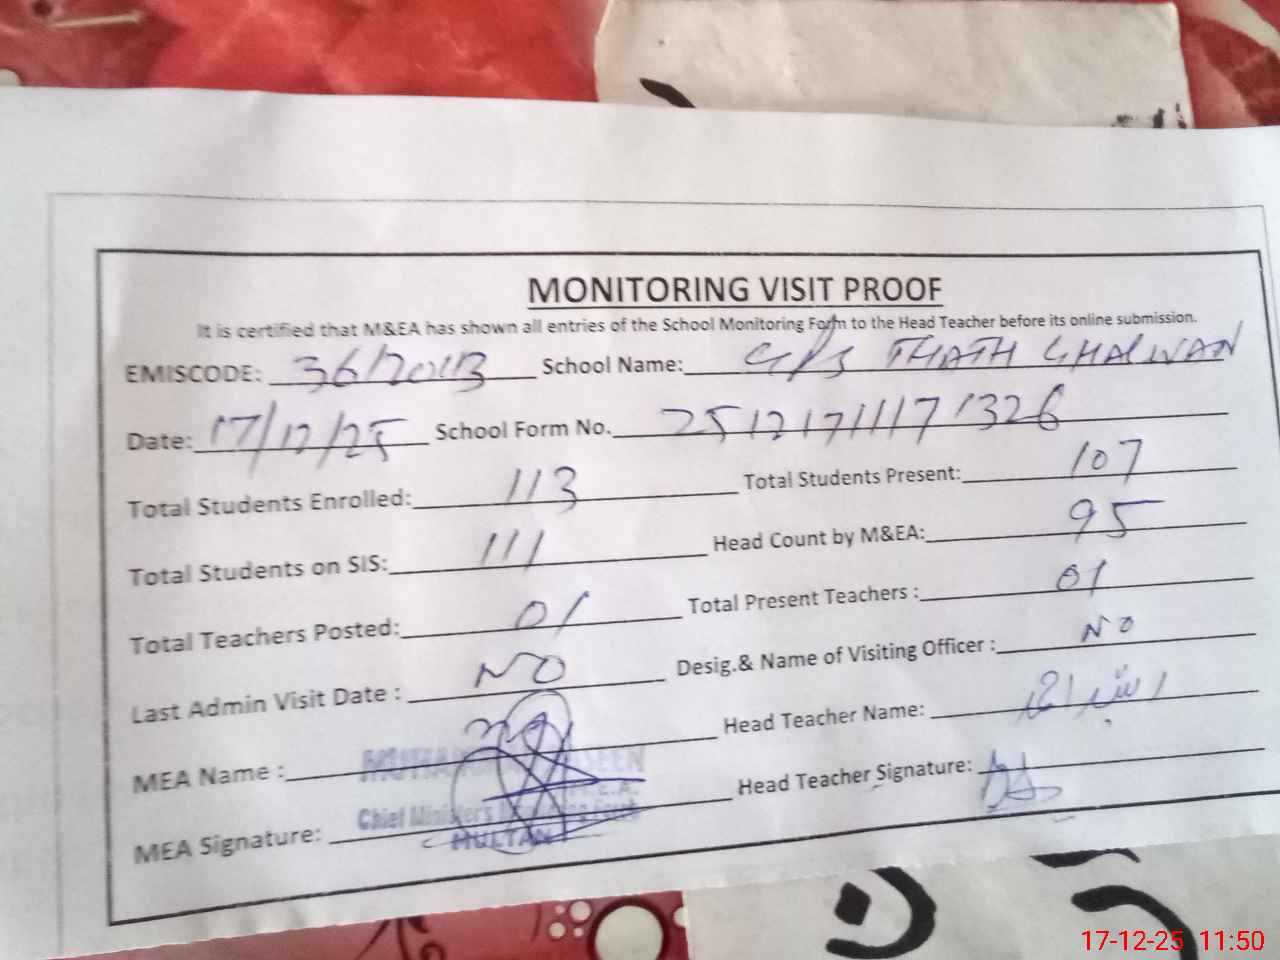 MONITORING VISIT PROOF
It is certified that M&EA has shown all entries of the School Monitoring Form to the Head Teacher before its online submission.
EMISCODE: School Name: G/P/S THATH GHALWAN
Date: 17/12/25 School Form No. 25121711171326
Total Students Enrolled: 113 Total Students Present: 107
Total Students on SIS: 111 Head Count by M&EA: 95
Total Teachers Posted: 01 Total Present Teachers : 01
Last Admin Visit Date : NO Desig.& Name of Visiting Officer : NO
MEA Name : Head Teacher Name:
M.E.A.
Chief Minister's Monitoring Force
MEA Signature: MULTAN Head Teacher Signature:
17-12-25 11:50